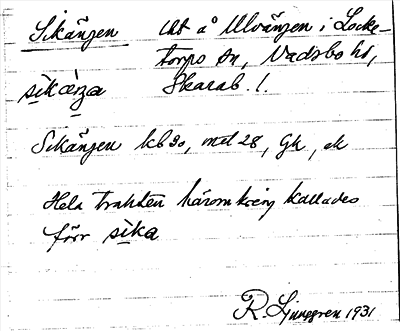 Sikängen   Ut å Ulvängen i Locke-
torps sn, Vadsbo hd,
sikäŋa   Skarab. l.
Sikängen kb 30, mtl 28, Gk, ek
Hela trakten häromkring kallades
förr sika
R. Ljunggren 1931